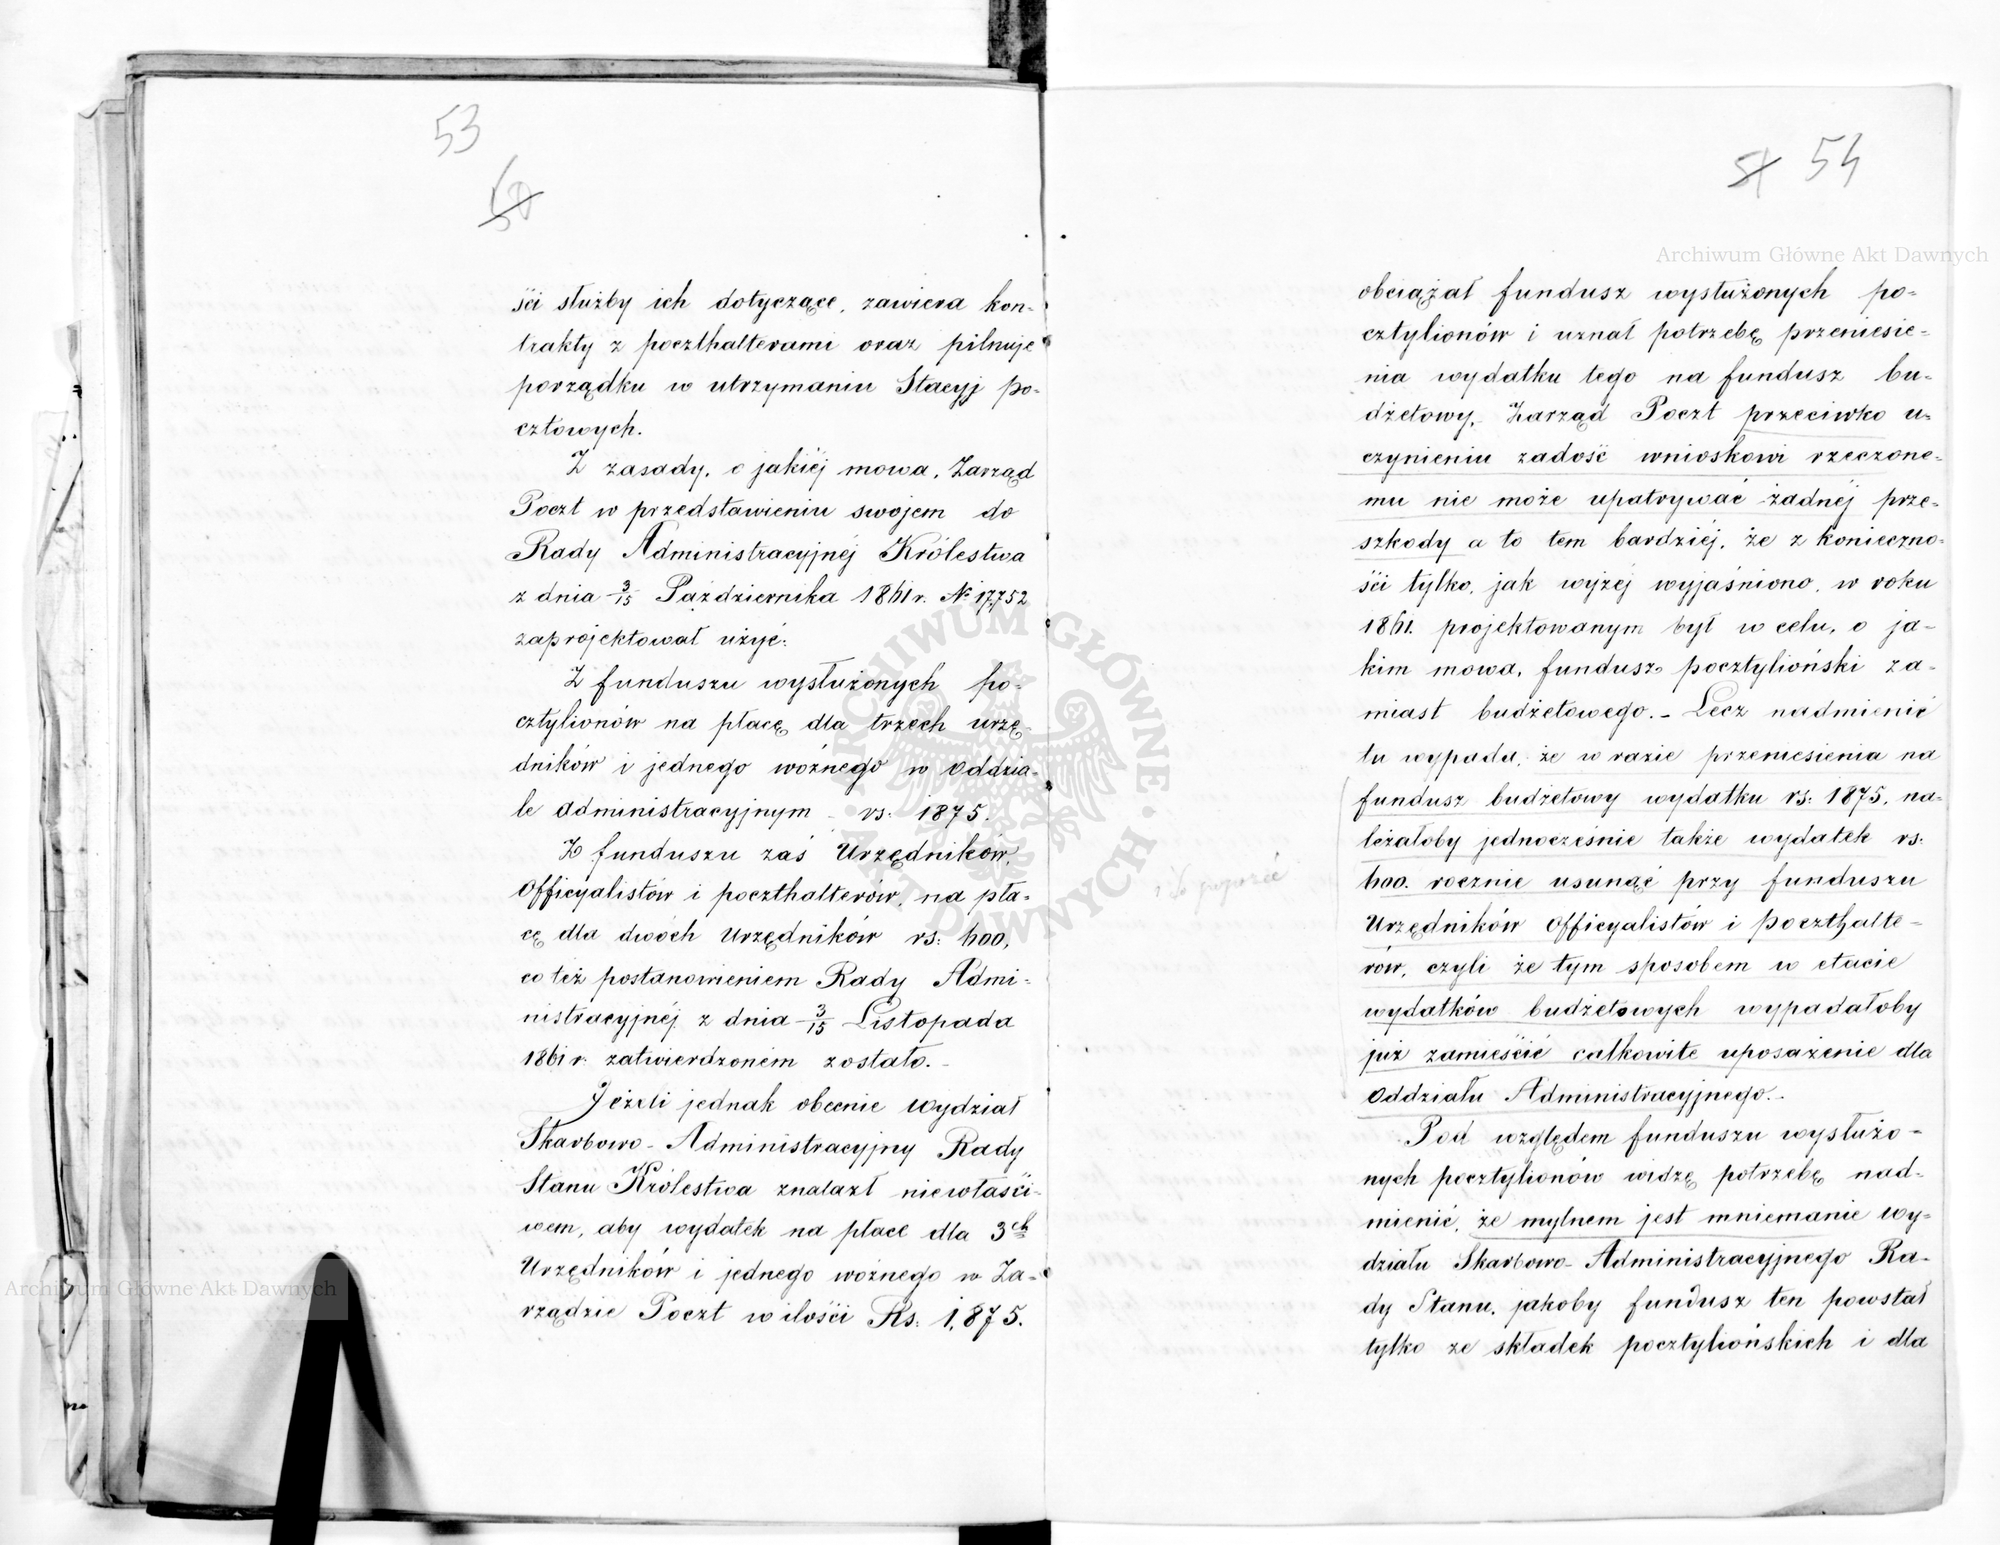 53
50
ści służby ich dotyczące, zawiera kon-
trakty z poczthalterami oraz pilnuje
porządku w utrzymaniu Stacyj po-
cztowych.
Z zasady, o jakiéj mowa, Zarząd
Poczt w przedstawieniu swojem do
Rady Administracyjnéj Królestwa
z dnia 3/15 Października 1861 r. № 17,752
zaprojektował użyć:
Z funduszu wysłużonych po-
cztylionów na płacę dla trzech urzę-
dników i jednego woźnego w Oddzia-
le Administracyjnym - rs: 1875.
Z funduszu zaś Urzędników,
Officyalistów i poczthalterów, na pła-
cę dla dwóch Urzędników rs: 600,
co też postanowieniem Rady Admi-
nistracyjnéj z dnia 3/15 Listopada
1861 r. zatwierdzoném zostało.-
Jeżeli jednak obecnie Wydział
Skarbowo-Administracyjny Rady
Stanu Królestwa znalazł niewłaści-
wem, aby wydatek na płace dla 3ch
Urzędników i jednego woźnego w Za-
rządzie Poczt w ilości Rs: 1,875.
51 54
Archiwum Główne Akt Dawnych
obciążał fundusz wysłużonych po-
cztylionów i uznał potrzebę przeniesie-
nia wydatku tego na fundusz bu-
dżetowy, Zarząd Poczt przeciwko u-
czynieniu zadość wnioskowi rzeczone-
mu nie może upatrywać żadnéj prze-
szkody a to tem bardziéj, że z konieczno-
ści tylko, jak wyżéj wyjaśniono, w roku
1861. projektowanym był w celu, o ja-
kim mowa, fundusz pocztylioński za-
miast budżetowego.- Lecz nadmienić
tu wypada, że w razie przeniesienia na
fundusz budżetowy wydatku rs: 1875, na-
leżałoby jednocześnie także wydatek rs:
600. rocznie usunąć przy funduszu
Urzędników Officyalistów i poczthalte-
rów, czyli że tym sposobem w etacie
wydatków budżetowych wypadałoby
już zamieścić całkowite uposażenie dla
Oddziału Administracyjnego.-
Pod względem funduszu wysłużo-
nych pocztylionów widzę potrzebę nad-
mienić, że mylnem jest mniemanie Wy-
działu Skarbowo-Administracyjnego Ra-
dy Stanu, jakoby fundusz ten powstał
tylko ze składek pocztyliońskich i dla
Archiwum Główne Akt Dawnych
ARCHIWUM GŁÓWNE · AKT DAWNYCH ·